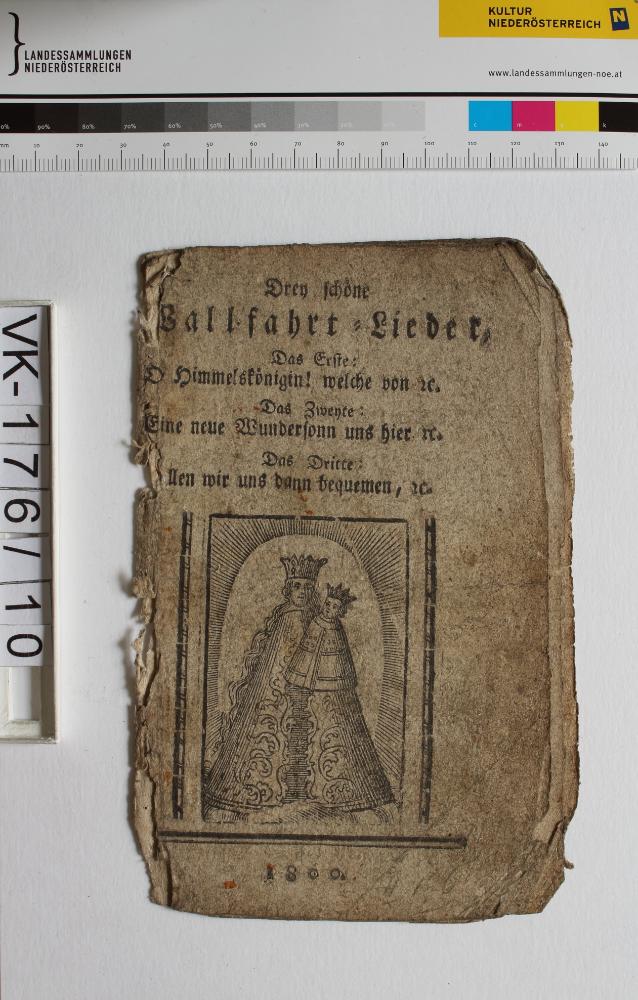 KULTUR
NIEDERÖSTERREICH N
LANDESSAMMLUNGEN
NIEDERÖSTERREICH
www.landessammlungen-noe.at
0% 90% 80% 70% 60% 50% 40%
c m y k
mm 10 20 30 40 50 60 70 80 90 100 110 120 130 140
VK-176/10
Drey schöne
Wallfahrt-Lieder,
Das Erste:
O Himmelskönigin! welche von ꝛc.
Das Zweyte:
Eine neue Wundersonn uns hier ꝛc.
Das Dritte:
llen wir uns dann bequemen, ꝛc.
1800.